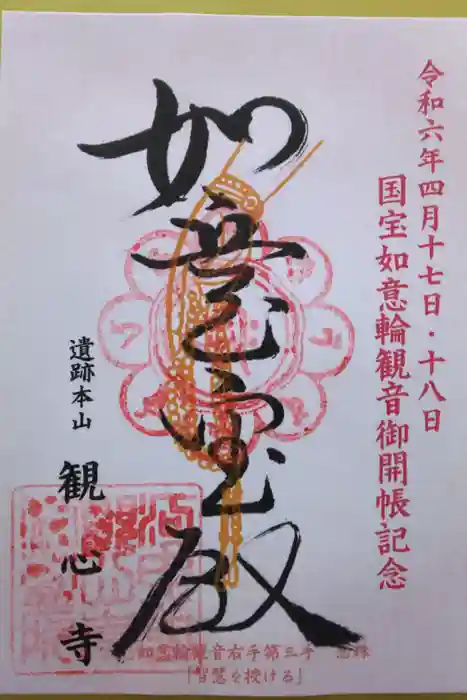 令和六年四月十七日・十八日
国宝如意輪観音御開帳記念
如意宝殿
遺跡本山
観心寺
如意輪観音右手第三手
「智慧を授ける」